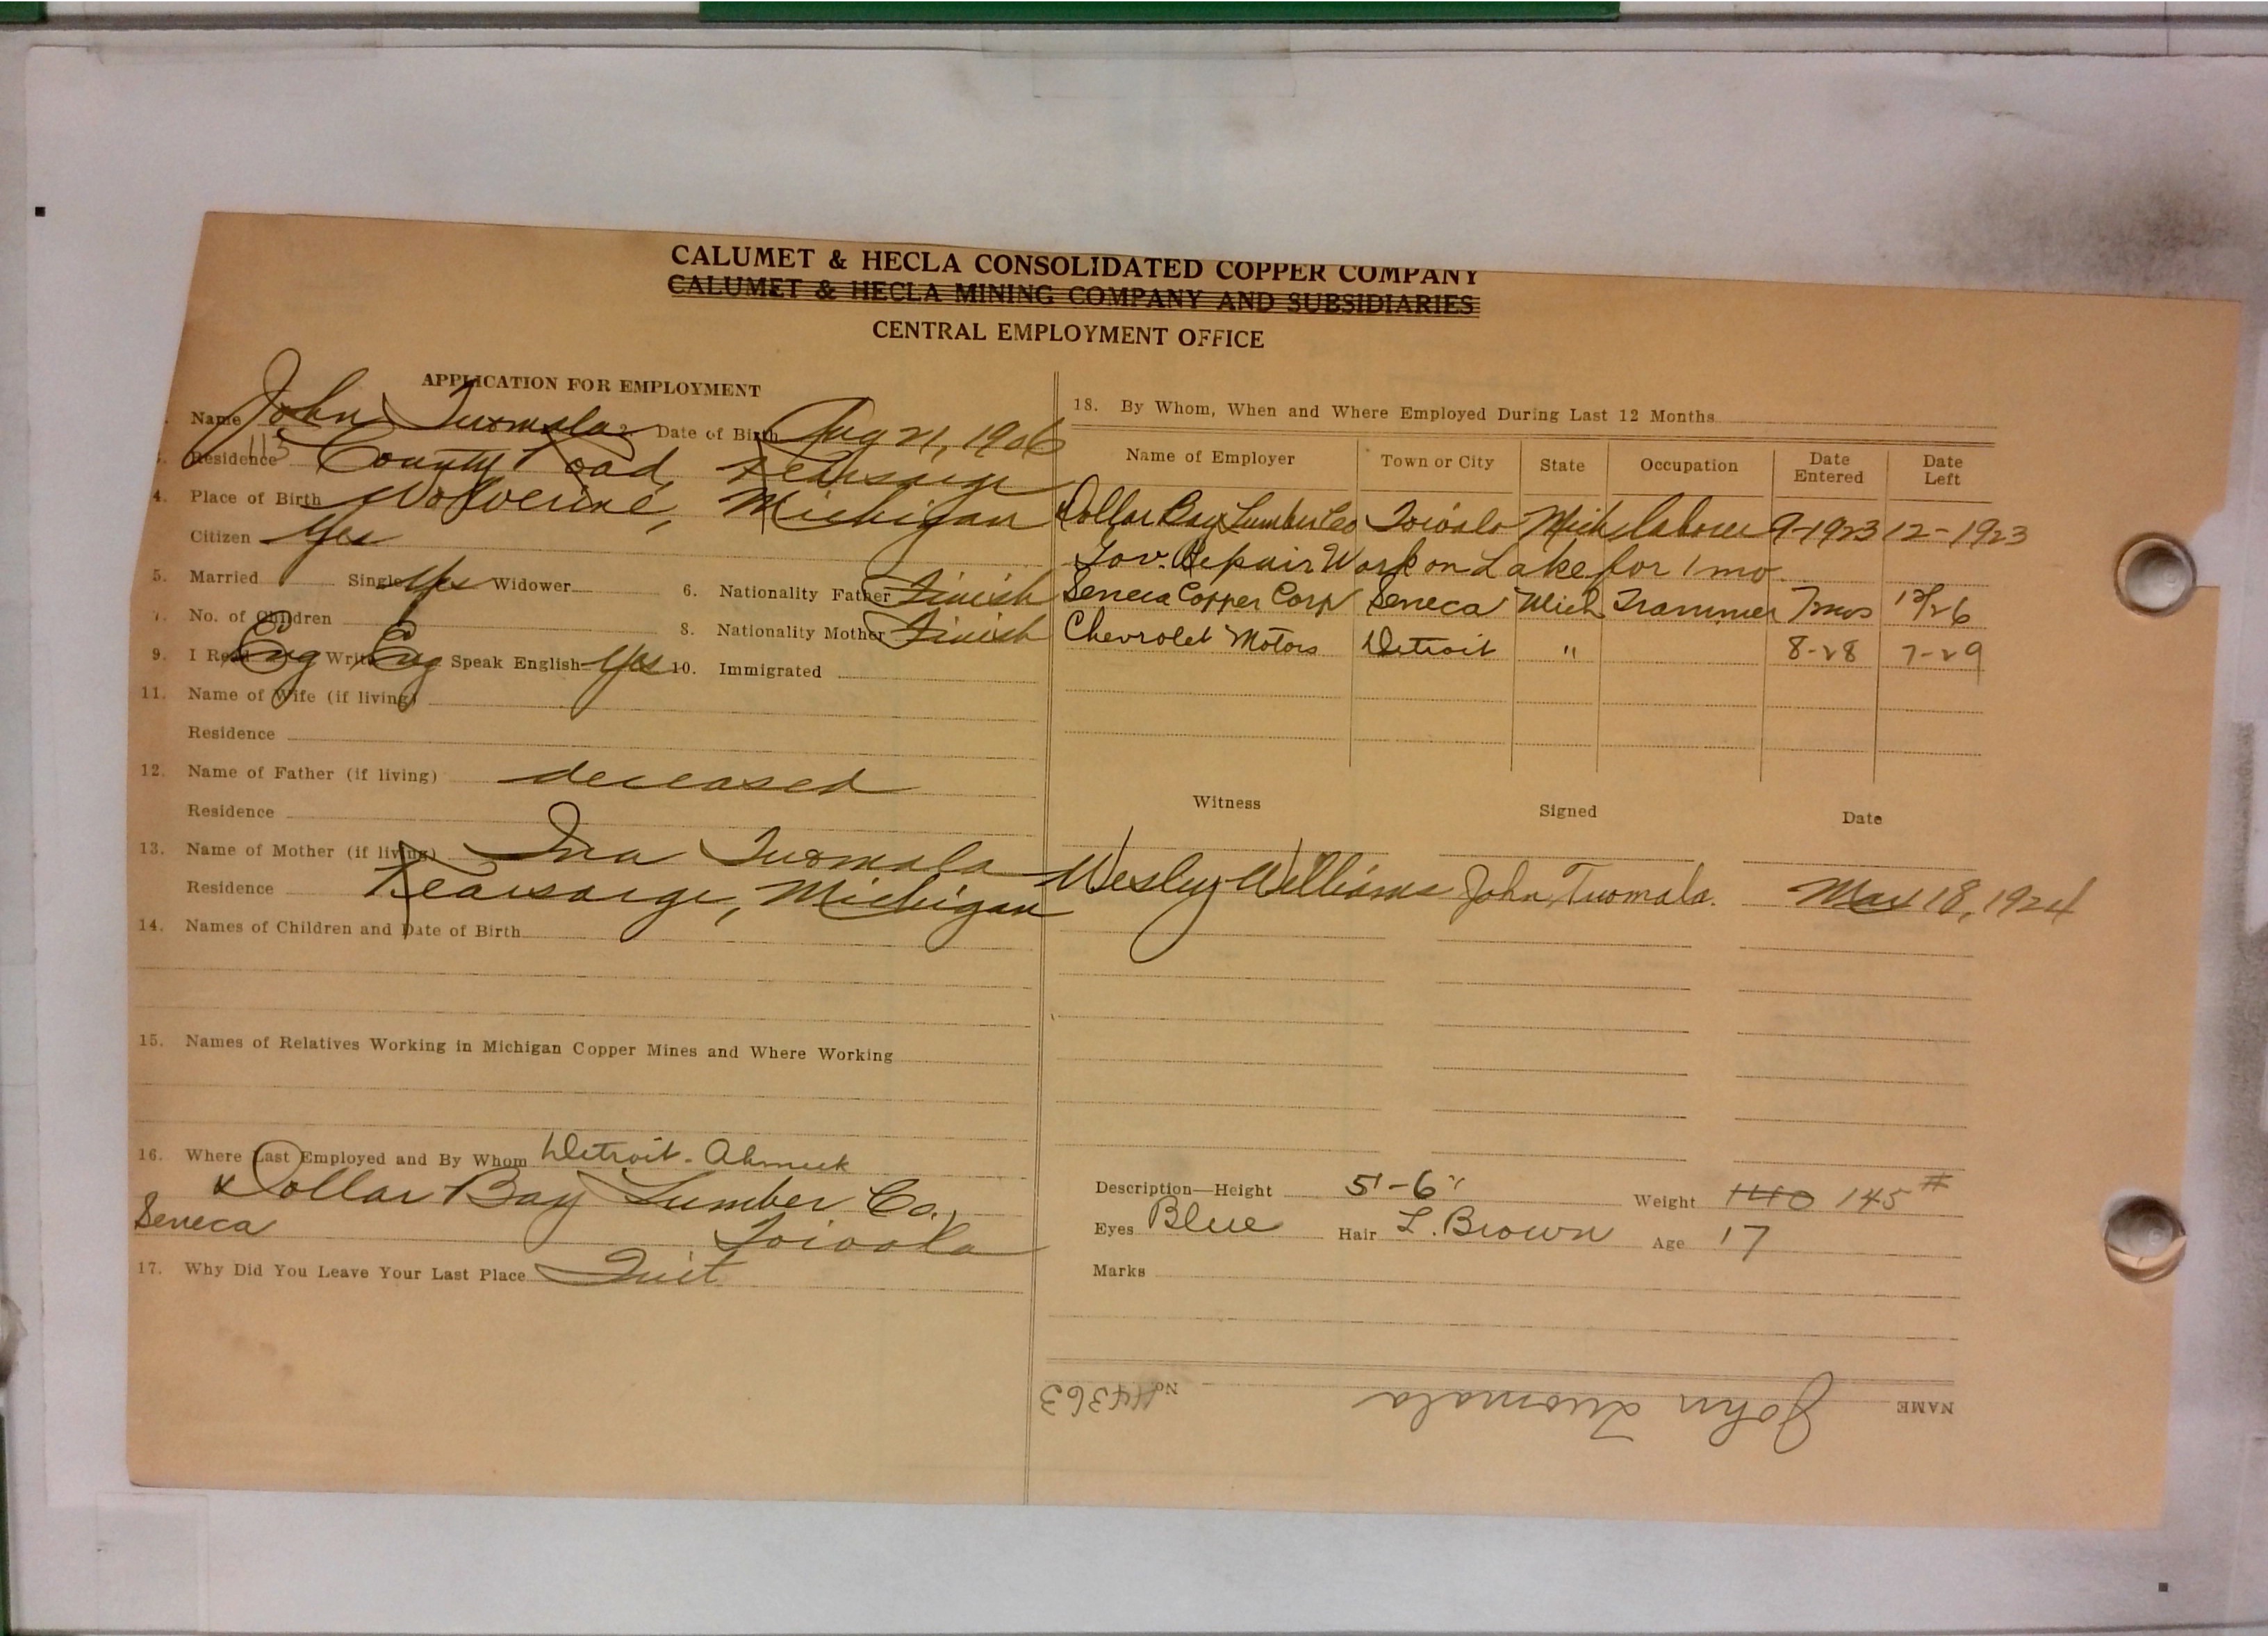 CALUMET & HECLA CONSOLIDATED COPPER COMPANY
CALUMET & HECLA MINING COMPANY AND SUBSIDIARIES
CENTRAL EMPLOYMENT OFFICE
APPLICATION FOR EMPLOYMENT
Name John Tuomala 2. Date of Birth Aug 21, 1906
Residence 113 County Road, Kearsarge
4. Place of Birth Wolverine, Michigan
Citizen Yes
5. Married Single Yes Widower 6. Nationality Father Finish
7. No. of Children 8. Nationality Mother Finish
9. I Read Eng Write Eng Speak English Yes 10. Immigrated
11. Name of Wife (if living)
Residence
12. Name of Father (if living) deceased
Residence
13. Name of Mother (if living) Ina Tuomala
Residence Kearsarge, Michigan
14. Names of Children and Date of Birth
15. Names of Relatives Working in Michigan Copper Mines and Where Working
16. Where Last Employed and By Whom Detroit - Ahmeek
Dollar Bay Lumber Co.,
Seneca Toivola
17. Why Did You Leave Your Last Place Quit
18. By Whom, When and Where Employed During Last 12 Months
Name of Employer Town or City State Occupation Date Entered Date Left
Dollar Bay Lumber Co Toivola Mich labourer 9-1923 12-1923
Gov. Repair Work on Lake for 1 mo.
Seneca Copper Corp Seneca Mich Trammer 7 mos 12/26
Chevrolet Motors Detroit " 8-28 7-29
Witness Signed Date
Wesley Williams John Tuomala. Mar 18, 1924
Description—Height 5'-6" Weight 140 145 #
Eyes Blue Hair L. Brown Age 17
Marks
NAME John Tuomala No. 44363